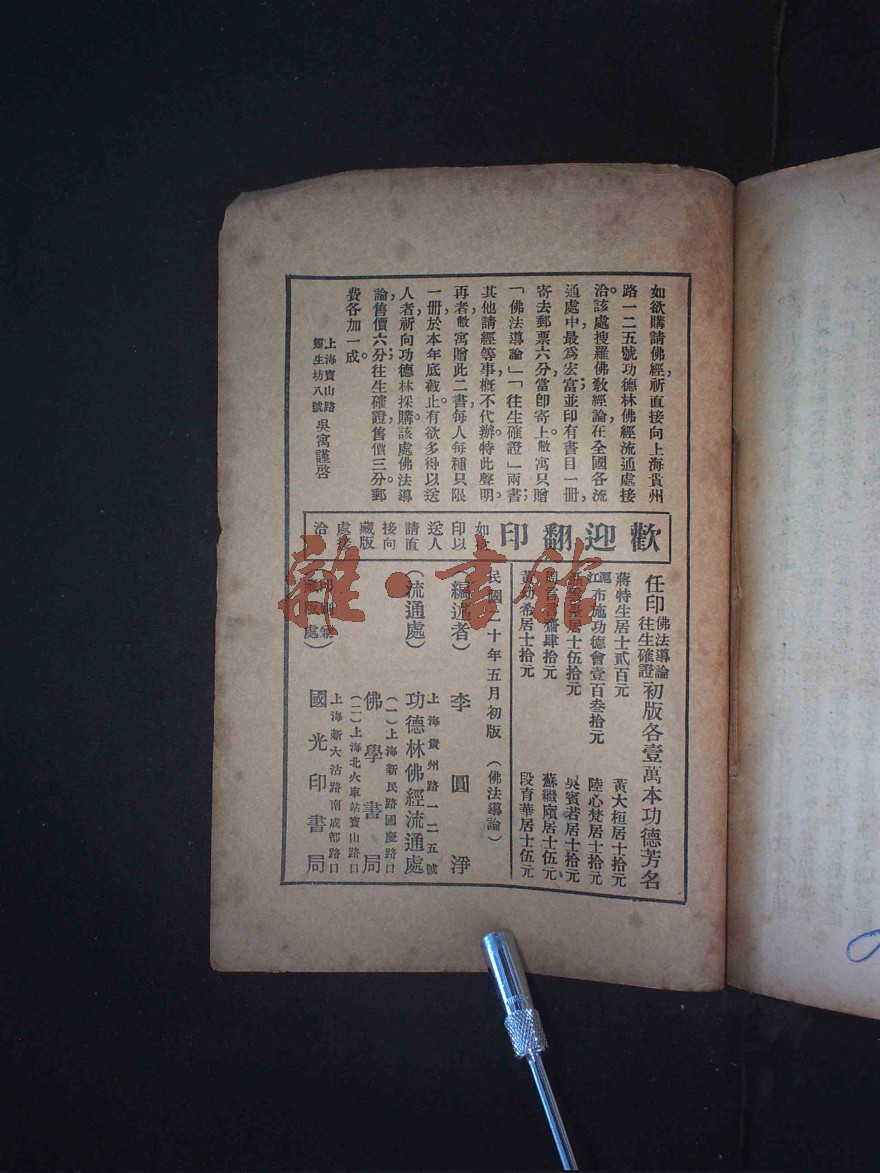 如欲購請佛經祈直接向上海貴州
路一二五號功德林佛經流通處接
洽。該處搜羅佛教經論在全國各流
通處中最為宏富並印有書目一冊
寄去郵票六分當卽寄上敝寓只贈
「佛法導論」「往生確證」兩書
其他請經等事槪不代辦特此聲明。
再者，敝寓贈此二書每人每種只限
一冊於本年底截止。有欲多得以送
人者祈向功德林採購該處佛法導
論售價六分往生確證售價三分。郵
費各加一成。
上海寶山路
坊八號
吳寓謹啓
歡迎翻印
如
印以
送人
請直
接向
藏版
處接
洽
任印
佛法導論
往生確證
初版各壹萬本功德芳名
蔣特生居士貳百元
黃大桓居士拾元
布施功德會壹百叁拾元
陸心梵居士拾元
居士伍拾元
吳賓若居士拾元
肆拾元
蘇繼廎居士伍元
希居士拾元
段育華居士伍元
民國二十年五月初版
（佛法導論）
編述者）
李圓淨
（流通處）
上海貴州路一二五號
功德林佛經流通處
（一）上海新民路國慶路口
佛學書局
（二）上海北火車站寶山路口
處）
上海新大沽路南成都路口
國光印書局
雜·書館